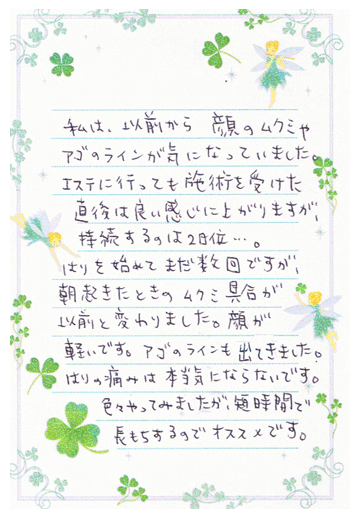 私は、以前から 顔のムクミや
アゴのラインが気になっていました。
エステに行っても施術を受けた
直後は良い感じに上がりますが、
持続するのは2日位…。
はりを始めてまだ数回ですが、
朝起きたときのムクミ具合が
以前と変わりました。顔が
軽いです。アゴのラインも出てきました。
はりの痛みは本当気にならないです。
色々やってみましたが、短時間で
長もちするのでオススメです。